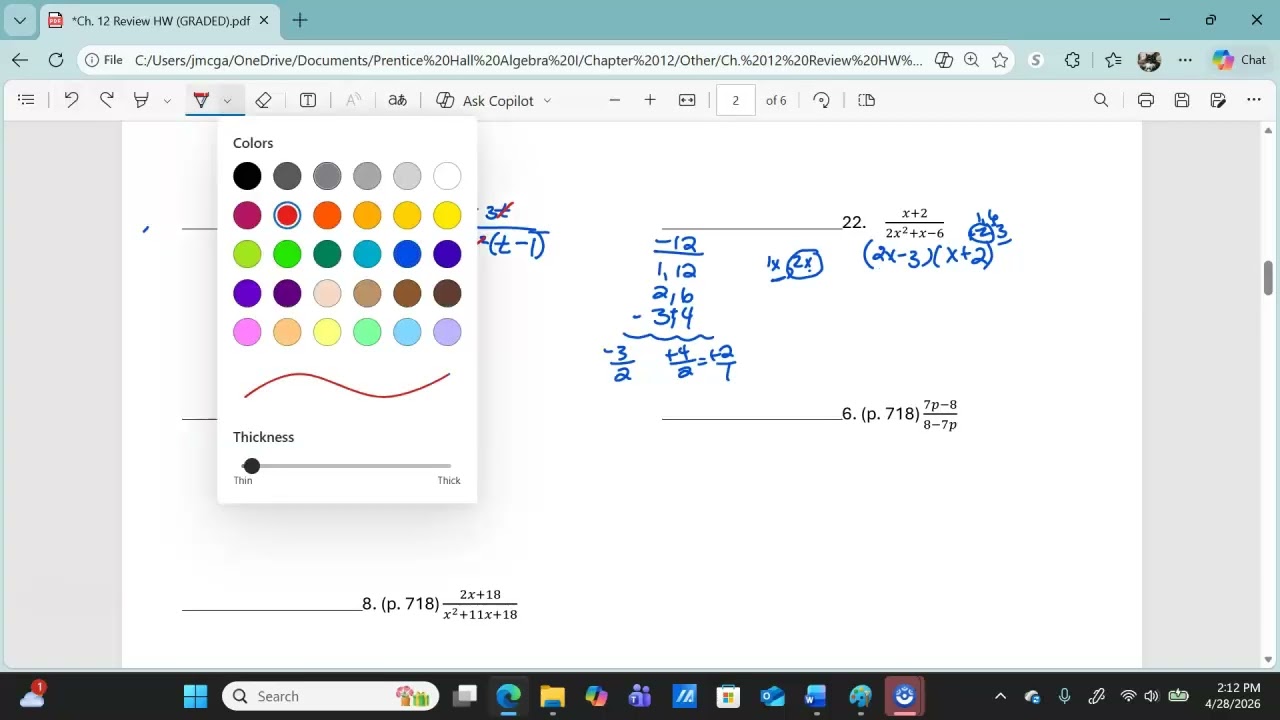 *Ch. 12 Review HW (GRADED).pdf
File C:/Users/jmcga/OneDrive/Documents/Prentice%20Hall%20Algebra%20I/Chapter%2012/Other/Ch.%2012%20Review%20HW%... Chat
Ask Copilot 2 of 6
Colors
Thickness
Thin Thick
3t
(t-1)
22. x+2
2x²+x-6
1,6
-2,3
(2x-3)(x+2)
1x, 2x
-12
1,12
2,6
-3,+4
-3/2 +4/2 = +2/1
6. (p. 718) 7p-8
8-7p
8. (p. 718) 2x+18
x²+11x+18
1
Search
2:12 PM
4/28/2026